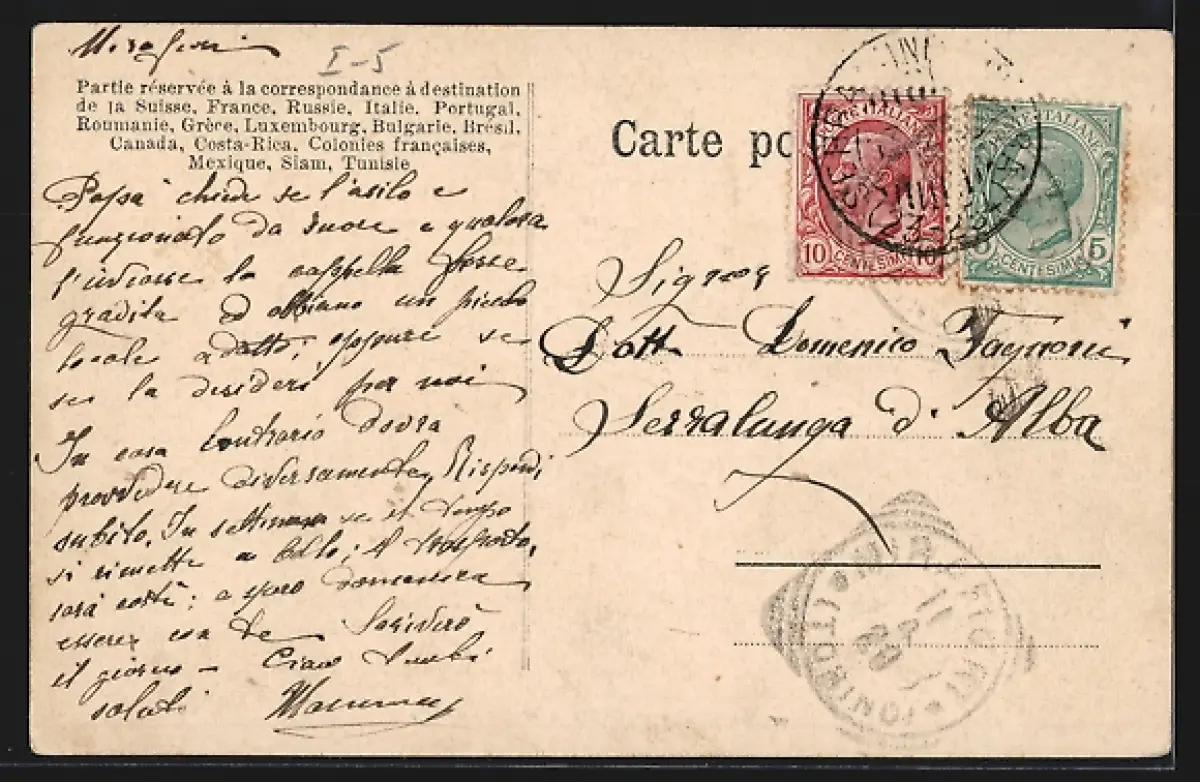 Mirafiori
I-5
Partie réservée à la correspondance à destination
de la Suisse, France, Russie, Italie, Portugal,
Roumanie, Grèce, Luxembourg, Bulgarie, Brésil,
Canada, Costa-Rica, Colonies françaises,
Mexique, Siam, Tunisie
Papà chiede se l'asilo e
funzionato da suore e qualora
la cappella fosse
gradita abbiamo un piccolo
locale adatto; oppure se
se la desideri per noi
In caso contrario dovrà
provvedere diversamente, Rispondi
subito. In settimana se il tempo
si rimette a bello; il trasporto,
sarà costì; a spero domenica
essere con te Scriverò
il giorno – Ciao tanti
saluti Mamma
Carte po
10 CENTESIMI 10
POSTE ITALIANE
5 CENTESIMI
Signor
Dott Domenico
Serralunga d'Alba
MIRAFIORI
(TORINO)
11